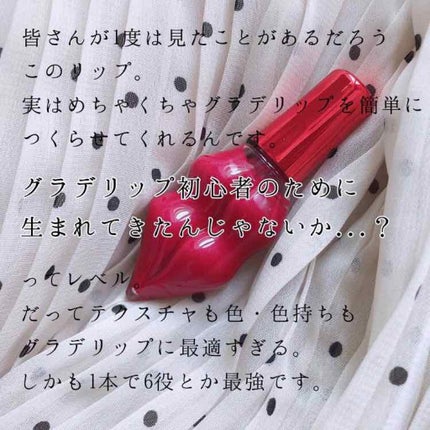 皆さんが1度は見たことがあるだろう
このリップ。
実はめちゃくちゃグラデリップを簡単に
つくらせてくれるんです。
グラデリップ初心者のために
生まれてきたんじゃないか...？
ってレベル。
だってテクスチャも色・色持ちも
グラデリップに最適すぎる。
しかも1本で6役とか最強です。